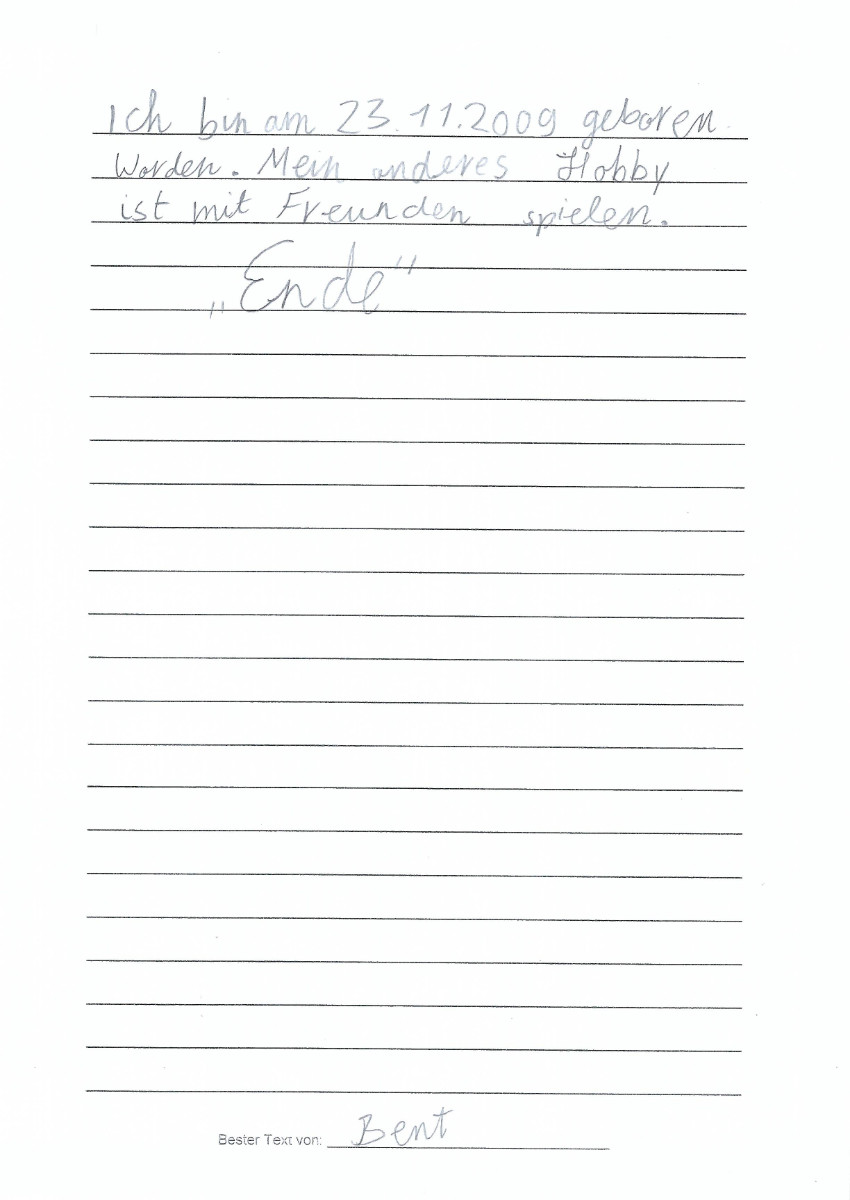 Ich bin am 23.11.2009 geboren
worden. Mein anderes Hobby
ist mit Freunden spielen.
„Ende“
Bester Text von: Bent